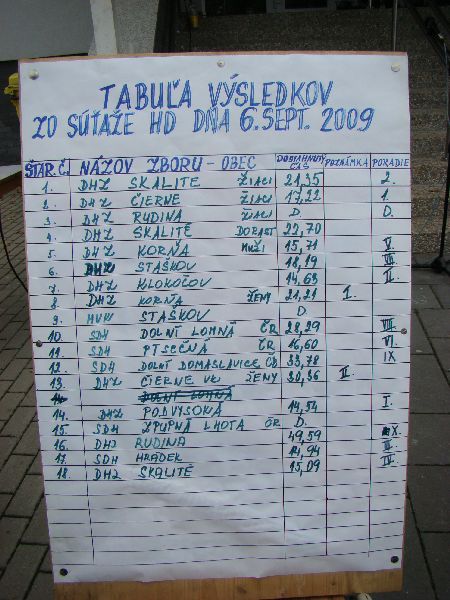 TABUĽA VÝSLEDKOV
ZO SÚŤAŽE HD DŇA 6.SEPT. 2009
ŠTAR. Č. NÁZOV ZBORU - OBEC DOSIAHNUTÝ ČAS POZNÁMKA PORADIE
1. DHZ SKALITÉ ŽIACI 21,35 2.
2. DHZ ČIERNE ŽIACI 17,22 1.
3. DHZ RUDINA ŽIACI D. D.
4. DHZ SKALITÉ DORAST 22,70
5. DHZ KORŇA MUŽI 15,71 V.
6. DHZ STAŠKOV 18,19 VII.
7. DHZ KLOKOČOV 14,63 II.
8. DHZ KORŇA ŽENY 21,21 I.
9. STAŠKOV D.
10. SDH DOLNÍ LOMNÁ ČR 28,29 VIII.
11. SDH PÍSEČNÁ ČR 16,60 VI.
12. SDH DOLNÍ DOMASLAVICE ČR 33,78 IX
13. DHZ ČIERNE ŽENY 30,36 II.
14. DOLNÍ LOMNÁ
14. DHZ PODVYSOKÁ 14,54 I.
15. SDH ZPUPNÁ LHOTA ČR D.
16. DHZ RUDINA 49,59 X.
17. SDH HRÁDEK 14,94
18. DHZ SKALITÉ 15,09 IV.